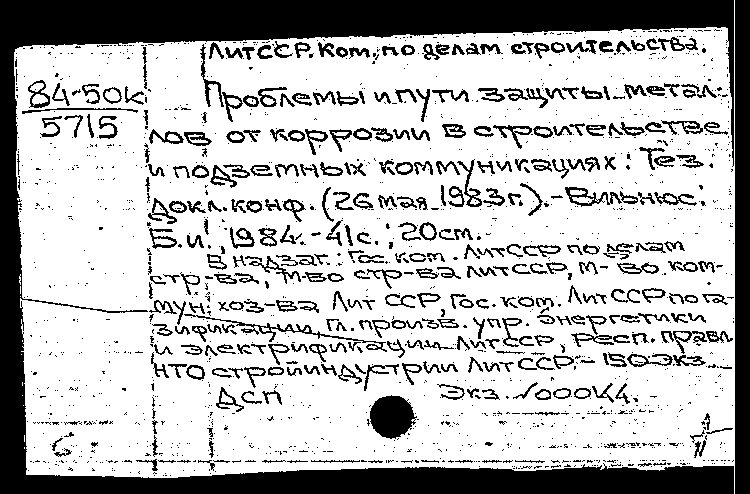 ЛитССР. Ком. по делам строительства.
84-50к
5715
Проблемы и пути защиты метал-
лов от коррозии в строительстве
и подземных коммуникациях: Тез.
докл. конф. (26 мая 1983 г.).-Вильнюс:
Б.и., 1984.-41с.; 20см.
В надзаг.: Гос. ком. ЛитССР по делам
стр-ва, М-во стр-ва ЛитССР, М-во ком-
мун. хоз-ва ЛитССР, Гос. ком. ЛитССР по га-
зификации, Гл. произв. упр. энергетики
и электрификации ЛитССР, Респ. правл.
НТО стройиндустрии ЛитССР.-150 экз.
ДСП Экз. №00044.